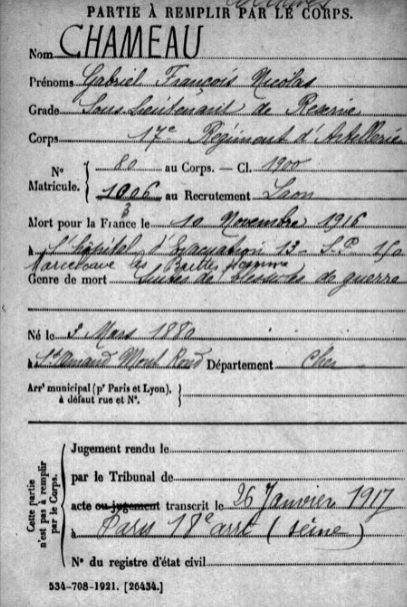 PARTIE À REMPLIR PAR LE CORPS.
Nom CHAMEAU
Prénoms Gabriel François Nicolas
Grade Sous-Lieutenant de Réserve
Corps 17e Régiment d'Artillerie
N° Matricule. { 80 au Corps. — Cl. 1900
1006 au Recrutement Laon
Mort pour la France le 10 Novembre 1916
à l'hôpital d'Evacuation 13 - S.P. 150
Marcelcave les Buttes Somme
Genre de mort Suites de blessures de guerre
Né le 3 Mars 1880
à St Amand Mont Rond Département Cher
Arrt municipal (pr Paris et Lyon), à défaut rue et N°.
Cette partie n'est pas à remplir par le Corps.
Jugement rendu le
par le Tribunal de
acte ou jugement transcrit le 26 Janvier 1917
à Paris 18e arrt (Seine)
N° du registre d'état civil
534-708-1921. [26434.]